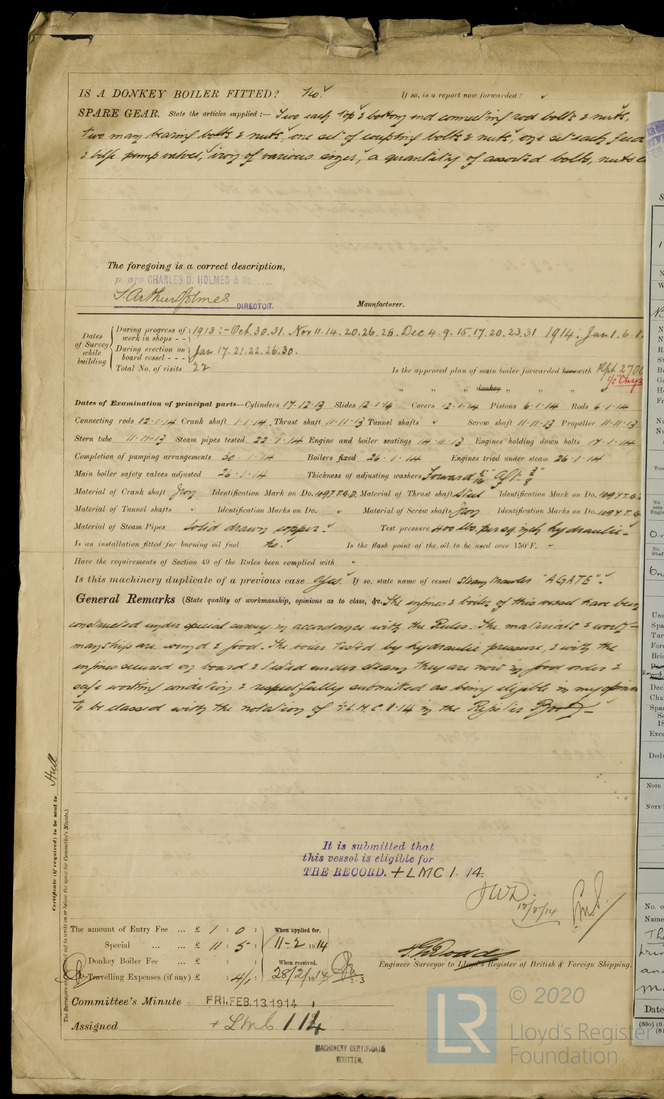 IS A DONKEY BOILER FITTED? No. If so, is a report now forwarded?
SPARE GEAR. State the articles supplied:— Two each top & bottom end connecting rod bolts & nuts,
two main bearing bolts & nuts, one set of coupling bolts & nuts, one set each feed
& bilge pump valves, iron of various sizes, a quantity of assorted bolts, nuts
The foregoing is a correct description,
CHARLES D. HOLMES & Co.
DIRECTOR. Manufacturer.
Dates of Survey while building
During progress of work in shops - - 1913:- Oct. 30. 31. Nov 11. 14. 20. 26. 28. Dec 4. 9. 15. 17. 20. 23. 31 1914. Jan 1. 6.
During erection on board vessel - - - Jan 17. 21. 22. 26. 30.
Total No. of visits 22 Is the approved plan of main boiler forwarded herewith
" " " donkey " " "
Dates of Examination of principal parts—Cylinders 17.12.13 Slides 12.1.14 Covers 12.1.14 Pistons 6.1.14 Rods 6.1.14
Connecting rods 12.1.14 Crank shaft 1.1.14 Thrust shaft 11.11.13 Tunnel shafts Screw shaft 11.11.13 Propeller 11.11.13
Stern tube 11.11.13 Steam pipes tested 22.1.14 Engine and boiler seatings 14.11.13 Engines holding down bolts 17.1.14
Completion of pumping arrangements 30.1.14 Boilers fixed 26.1.14 Engines tried under steam 26.1.14
Main boiler safety valves adjusted 26.1.14 Thickness of adjusting washers Forward Aft
Material of Crank shaft Iron Identification Mark on Do. Material of Thrust shaft Steel Identification Mark on Do.
Material of Tunnel shafts Identification Marks on Do. Material of Screw shafts Iron Identification Marks on Do.
Material of Steam Pipes Solid drawn copper. Test pressure 400 lbs. per sq. inch hydraulic
Is an installation fitted for burning oil fuel No. Is the flash point of the oil to be used over 150°F.
Have the requirements of Section 49 of the Rules been complied with
Is this machinery duplicate of a previous case Yes. If so, state name of vessel Steam Trawler "AGATE"
General Remarks (State quality of workmanship, opinions as to class, &c. The engines & boiler of this vessel have been
constructed under special survey in accordance with the Rules. The materials & work-
manship are sound & good. The boiler tested by hydraulic pressure, & with the
engines secured on board & tested under steam they are now in good order &
safe working condition & respectfully submitted as being eligible in my opinion
to be classed with the notation of + L.M.C 1.14 in the Register Book
Certificate (if required) to be sent to Hull
It is submitted that
this vessel is eligible for
THE RECORD. + LMC 1. 14.
The amount of Entry Fee ... £ 1 : 0 : When applied for,
Special ... ... £ 11 : 5 : 11-2-1914
Donkey Boiler Fee ... £ : : When received,
Travelling Expenses (if any) £ : 4/ : 28/2/1914
Engineer Surveyor to Lloyd's Register of British & Foreign Shipping.
Committee's Minute FRI. FEB. 13. 1914
Assigned + LMC 1.14
MACHINERY CERTIFICATE
WRITTEN.
LR © 2020
Lloyd's Register
Foundation